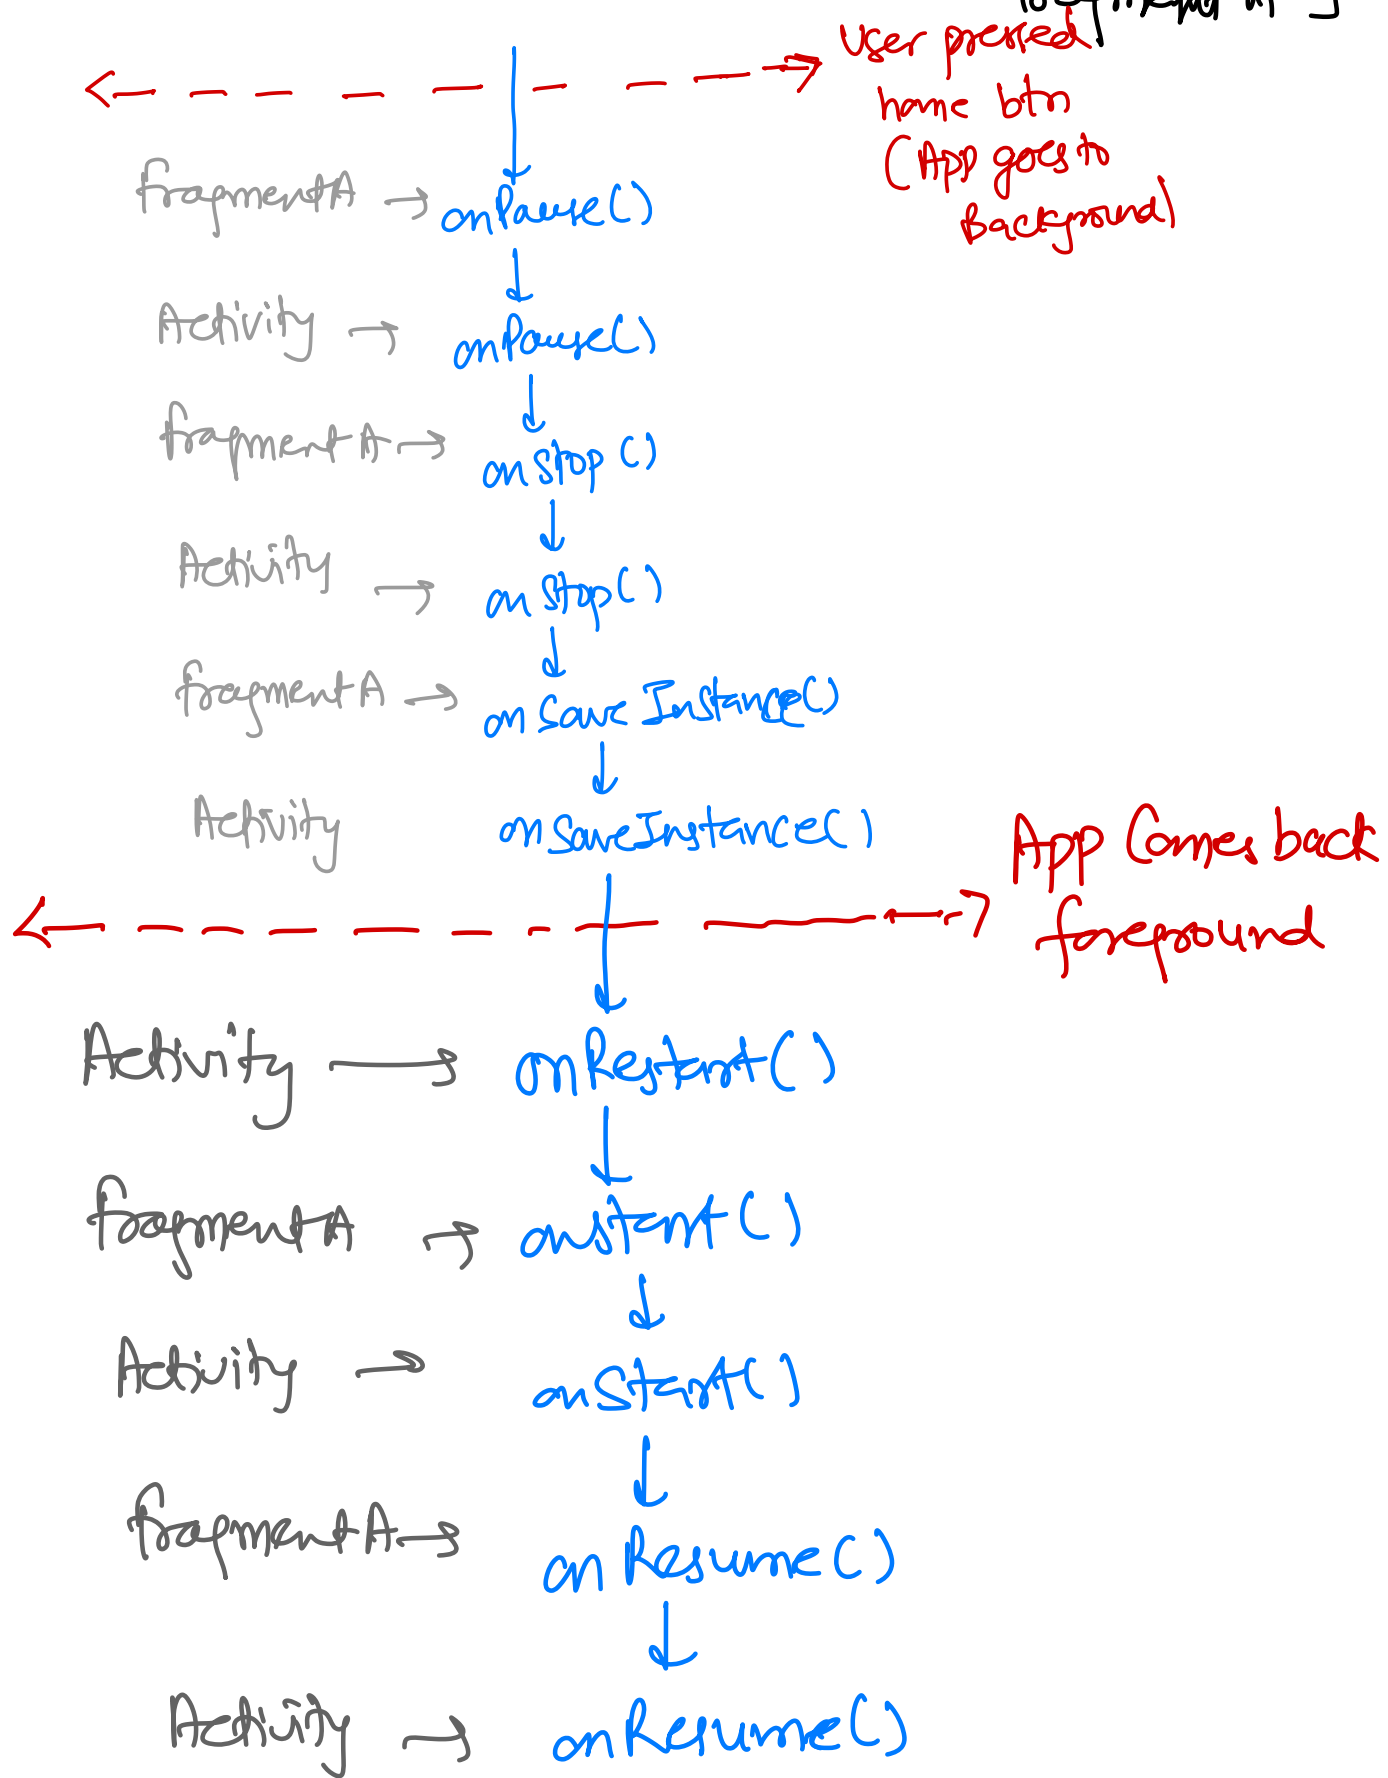 User pressed
home btn
(App goes to
Background)
fragmentA → onPause()
Activity → onPause()
fragmentA → onStop()
Activity → onStop()
fragmentA → onSaveInstance()
Activity onSaveInstance()
App Comes back
foreground
Activity → onRestart()
fragmentA → onStart()
Activity → onStart()
fragmentA → onResume()
Activity → onResume()